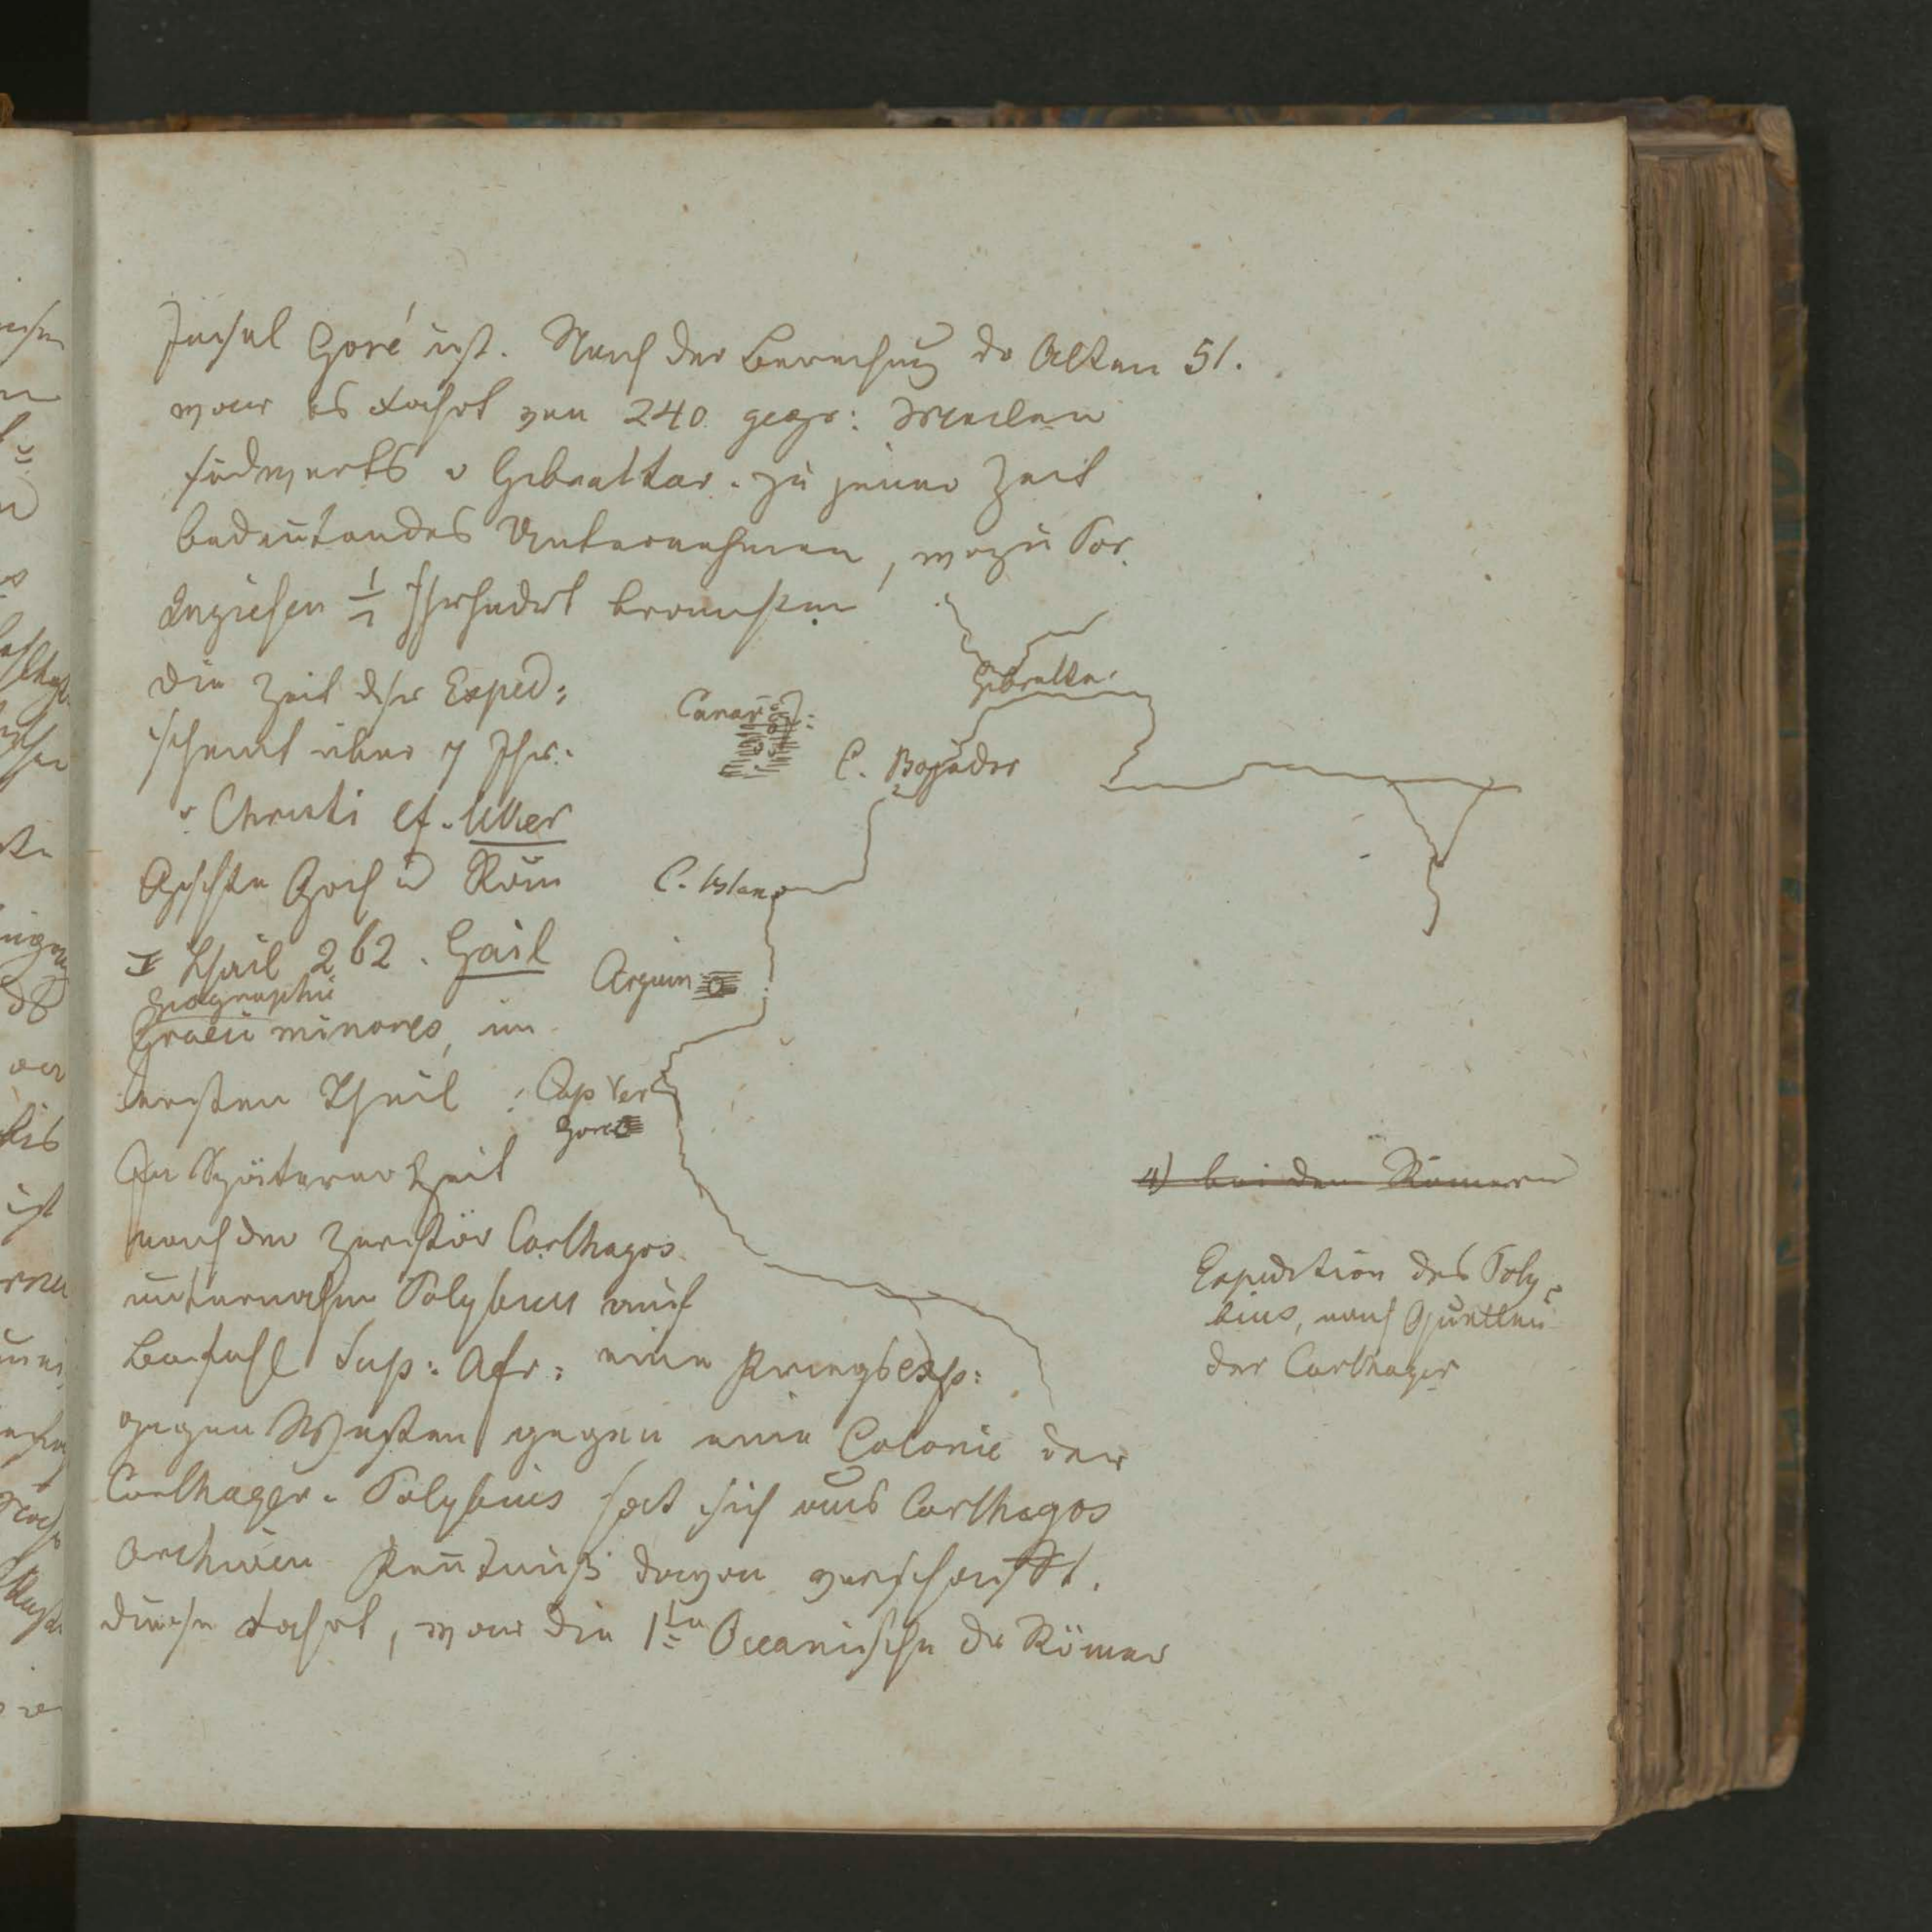 Insel Goré ist. Nach der Berechnung der Alten 51.
war es Fahrt von 240 geogr: Meilen
südwerts v Gibraltar. zu jener Zeit
bedeutendes Unternehmen, wozu Por.
tugiesen ½ Jhrhndrt brauchten
die Zeit dsr Exped:
scheint über 7 Jhr:
v. Christi cf. Uker
Gschichte Grch u Röm
I Theil 262. Gail
Geographi
Graeci minores, im
ersten Theil
Canar I:
Gibralta:
C. Bojador
C. blanc
Arguin
Cap Ver
Goré
In Späterer Zeit
nach der Zerstör Carthagos
unternahm Polybius auf
Befehl Scip: Afr: eine Kriegsexp:
gegen Westen gegen eine Colonie der
Carthager. Polybius hat sich aus Carthagos
Archiven Kentniß davon verschafft.
diese Fahrt, war die 1te Oceanische der Römer
4) bei den Römern
Expedition des Poly
bius, nach Quellen
der Carthager